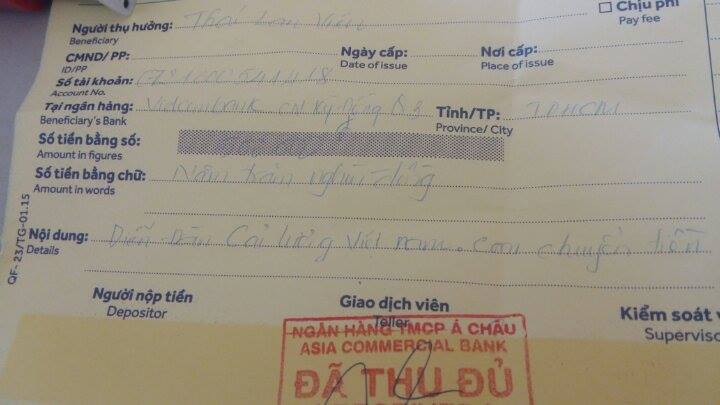 Chịu phí
Pay fee
Người thụ hưởng: Thái Lan Viên
Beneficiary
CMND/ PP: Ngày cấp: Nơi cấp:
ID/PP Date of issue Place of issue
Số tài khoản:
Account No.
Tại ngân hàng: Vietcombank CN Kỳ Đồng Q3 Tỉnh/TP: TPHCM
Beneficiary's Bank Province/ City
Số tiền bằng số:
Amount in figures
Số tiền bằng chữ: Năm trăm nghìn đồng
Amount in words
Nội dung: Diễn Đàn Cải lương Việt nam. con chuyển tiền
Details
QF- 23/TG-01.15
Người nộp tiền Giao dịch viên Kiểm soát
Depositor Teller
NGÂN HÀNG TMCP Á CHÂU
ASIA COMMERCIAL BANK
ĐÃ THU ĐỦ